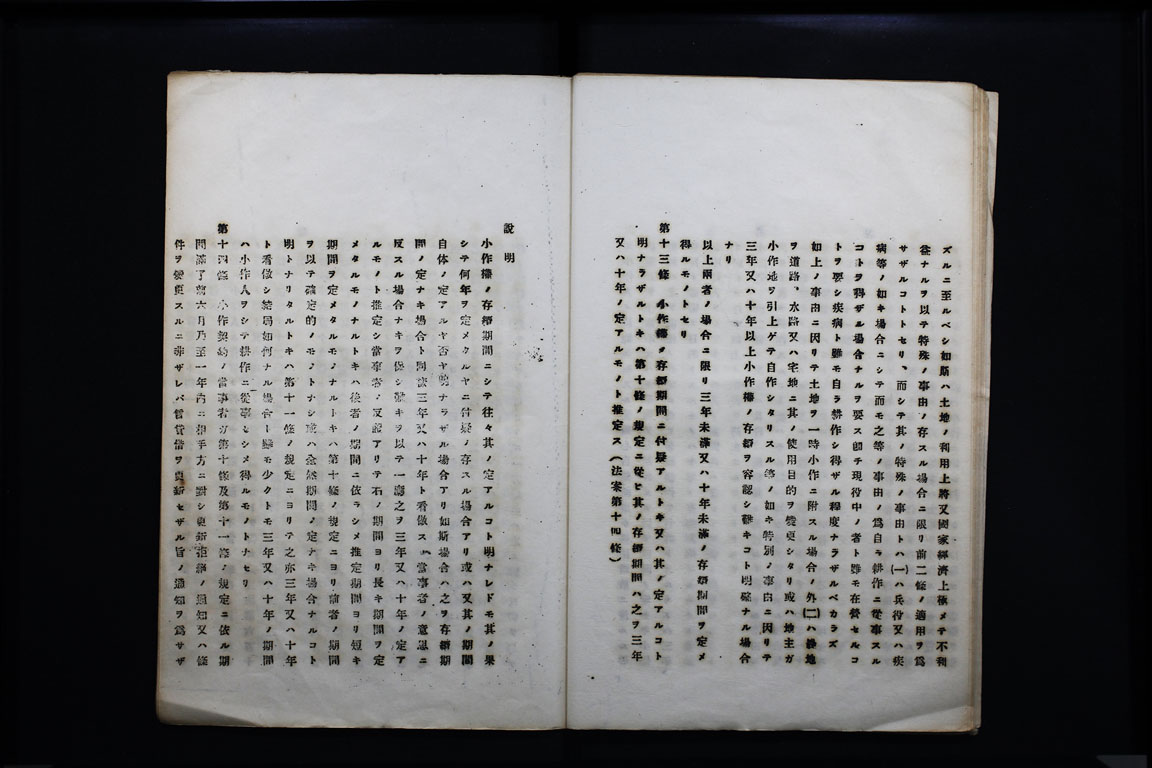 ズルニ至ルベシ如斯ハ土地ノ利用上將又國家經濟上極メテ不利
益ナルヲ以テ特殊ノ事由ノ存スル場合ニ限リ前二條ノ適用ヲ爲
サザルコトトセリ、而シテ其ノ特殊ノ事由トハ(一)ハ兵役又ハ疾
病等ノ如キ場合ニシテ而モ之等ノ事由ノ爲自ラ耕作ニ從事スル
コトヲ得ザル場合ナルヲ要ス卽チ現役中ノ者ト雖モ在營セルコ
トヲ要シ疾病ト雖モ自ラ耕作シ得ザル程度ナラザルベカラズ
如上ノ事由ニ因リテ土地ヲ一時小作ニ附スル場合ノ外(二)ハ耕地
ヲ道路、水路又ハ宅地ニ其ノ使用目的ヲ變更シタリ或ハ地主ガ
小作地ヲ引上ゲテ自作シタリスル等ノ如キ特別ノ事由ニ因リテ
三年又ハ十年以上小作權ノ存續ヲ容認シ難キコト明確ナル場合
ナリ
以上兩者ノ場合ニ限リ三年未滿又ハ十年未滿ノ存續期間ヲ定メ
得ルモノトセリ
第十三條 小作權ノ存續期間ニ付疑アルトキ又ハ其ノ定アルコト
明ナラザルトキハ第十條ノ規定ニ從ヒ其ノ存續期間ハ之ヲ三年
又ハ十年ノ定アルモノト推定ス(法案第十四條)
說明
小作權ノ存續期間ニシテ往々其ノ定アルコト明ナレドモ其ノ果
シテ何年ヲ定メタルヤニ付疑ノ存スル場合アリ或ハ又其ノ期間
自体ノ定アルヤ否ヤ明ナラザル場合アリ如斯場合ハ之ヲ存續期
間ノ定ナキ場合ト同樣三年又ハ十年ト看做スハ當事者ノ意思ニ
反スル場合ナキヲ保シ難キヲ以テ一應之ヲ三年又ハ十年ノ定ア
ルモノト推定シ當事者ノ反證アリテ右ノ期間ヨリ長キ期間ヲ定
メタルモノナルトキハ後者ノ期間ニ依ラシメ推定期間ヨリ短キ
期間ヲ定メタルモノナルトキハ第十條ノ規定ニヨリ前者ノ期間
ヲ以テ確定的ノモノトナシ或ハ全然期間ノ定ナキ場合ナルコト
明トナリタルトキハ第十一條ノ規定ニヨリテ之亦三年又ハ十年
ト看做シ結局如何ナル場合ト雖モ少クトモ三年又ハ十年ノ期間
ハ小作人ヲシテ耕作ニ從事セシメ得ルモノトナセリ
第十四條 小作契約ノ當事者ガ第十條及第十一條ノ規定ニ依ル期
間滿了前六月乃至一年內ニ相手方ニ對シ更新拒絕ノ通知又ハ條
件ヲ變更スルニ非ザレバ賃貸借ヲ更新セザル旨ノ通知ヲ爲サザ